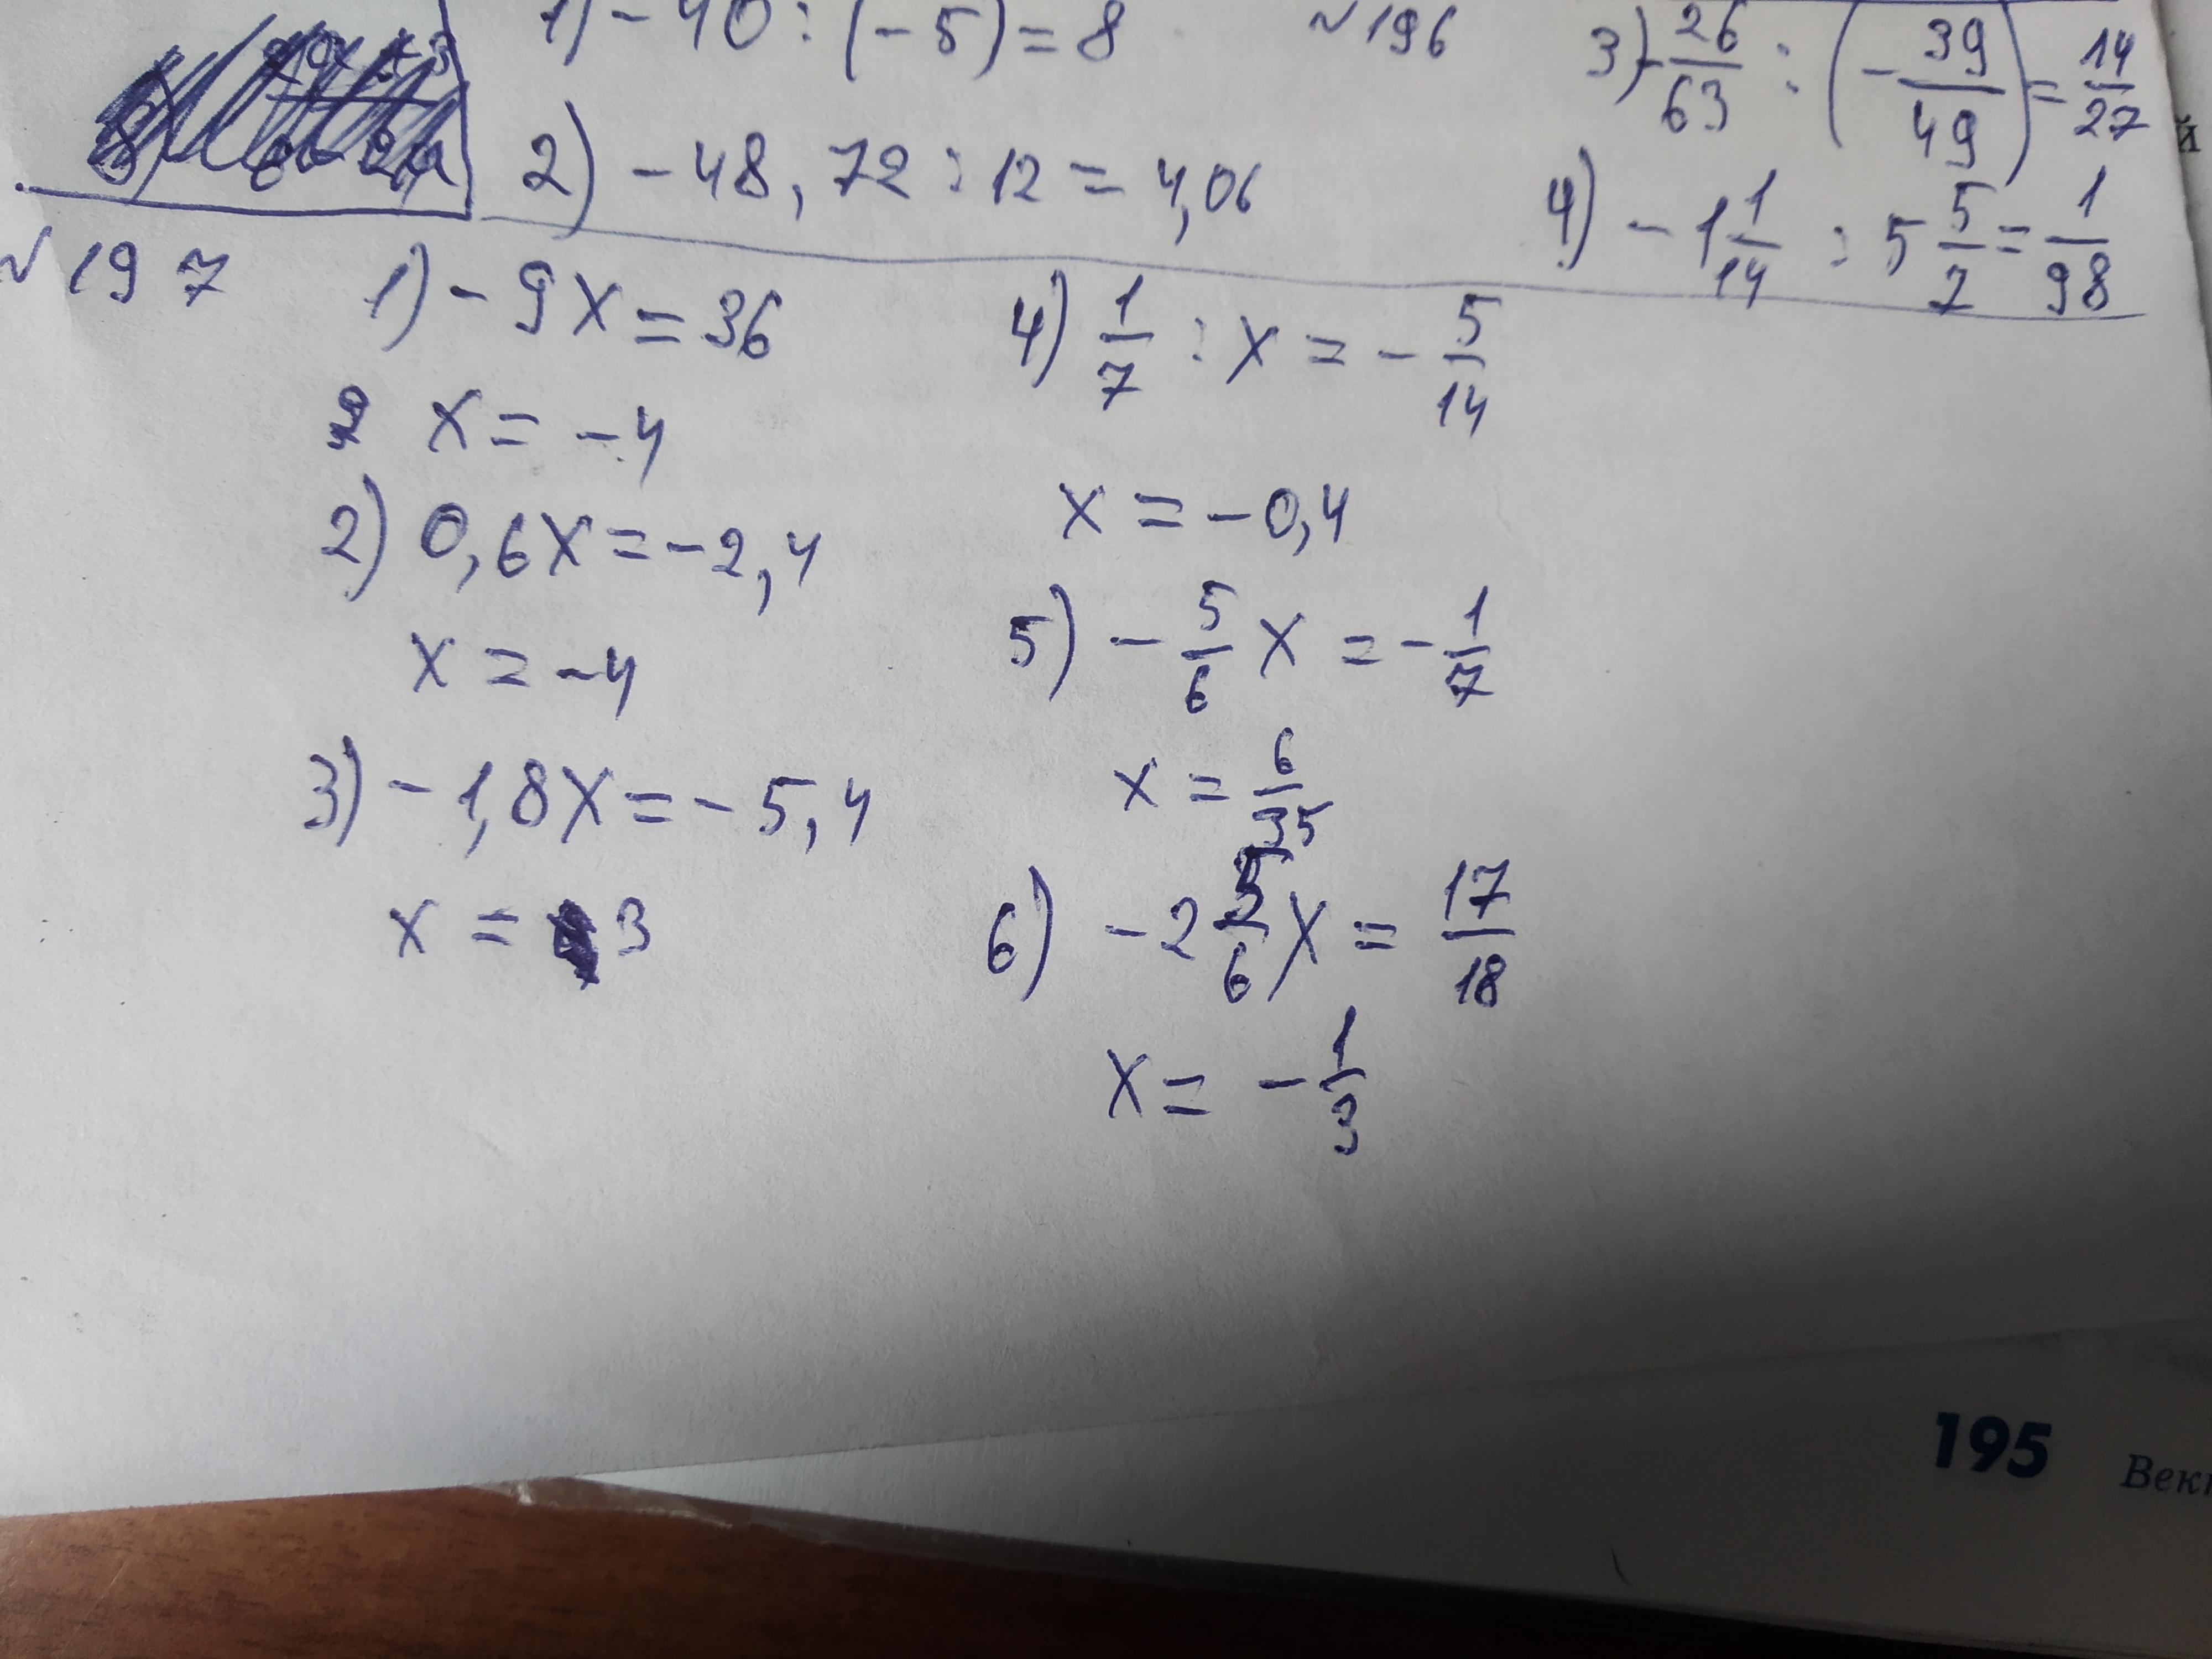 1) - 40 : (-5) = 8
№ 196
3) - 26/63 : (- 39/49) = 14/27
2) - 48,72 : 12 = 4,06
4) - 1 1/14 : 5 5/7 = 1/98
й
№ 197
1) - 9x = 36
x = -4
2) 0,6x = -2,4
x = -4
3) - 1,8x = - 5,4
x = 3
4) 1/7 : x = - 5/14
x = -0,4
5) - 5/6 x = - 1/7
x = 6/35
6) - 2 5/6 x = 17/18
x = - 1/3
195 Век